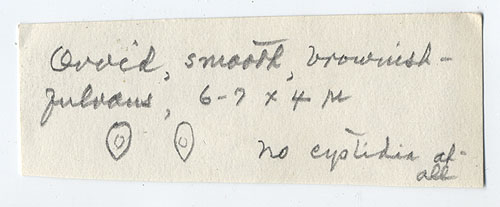 Ovoid, smooth, brownish-
fulvous, 6-7 x 4 µ
no cystidia at
all